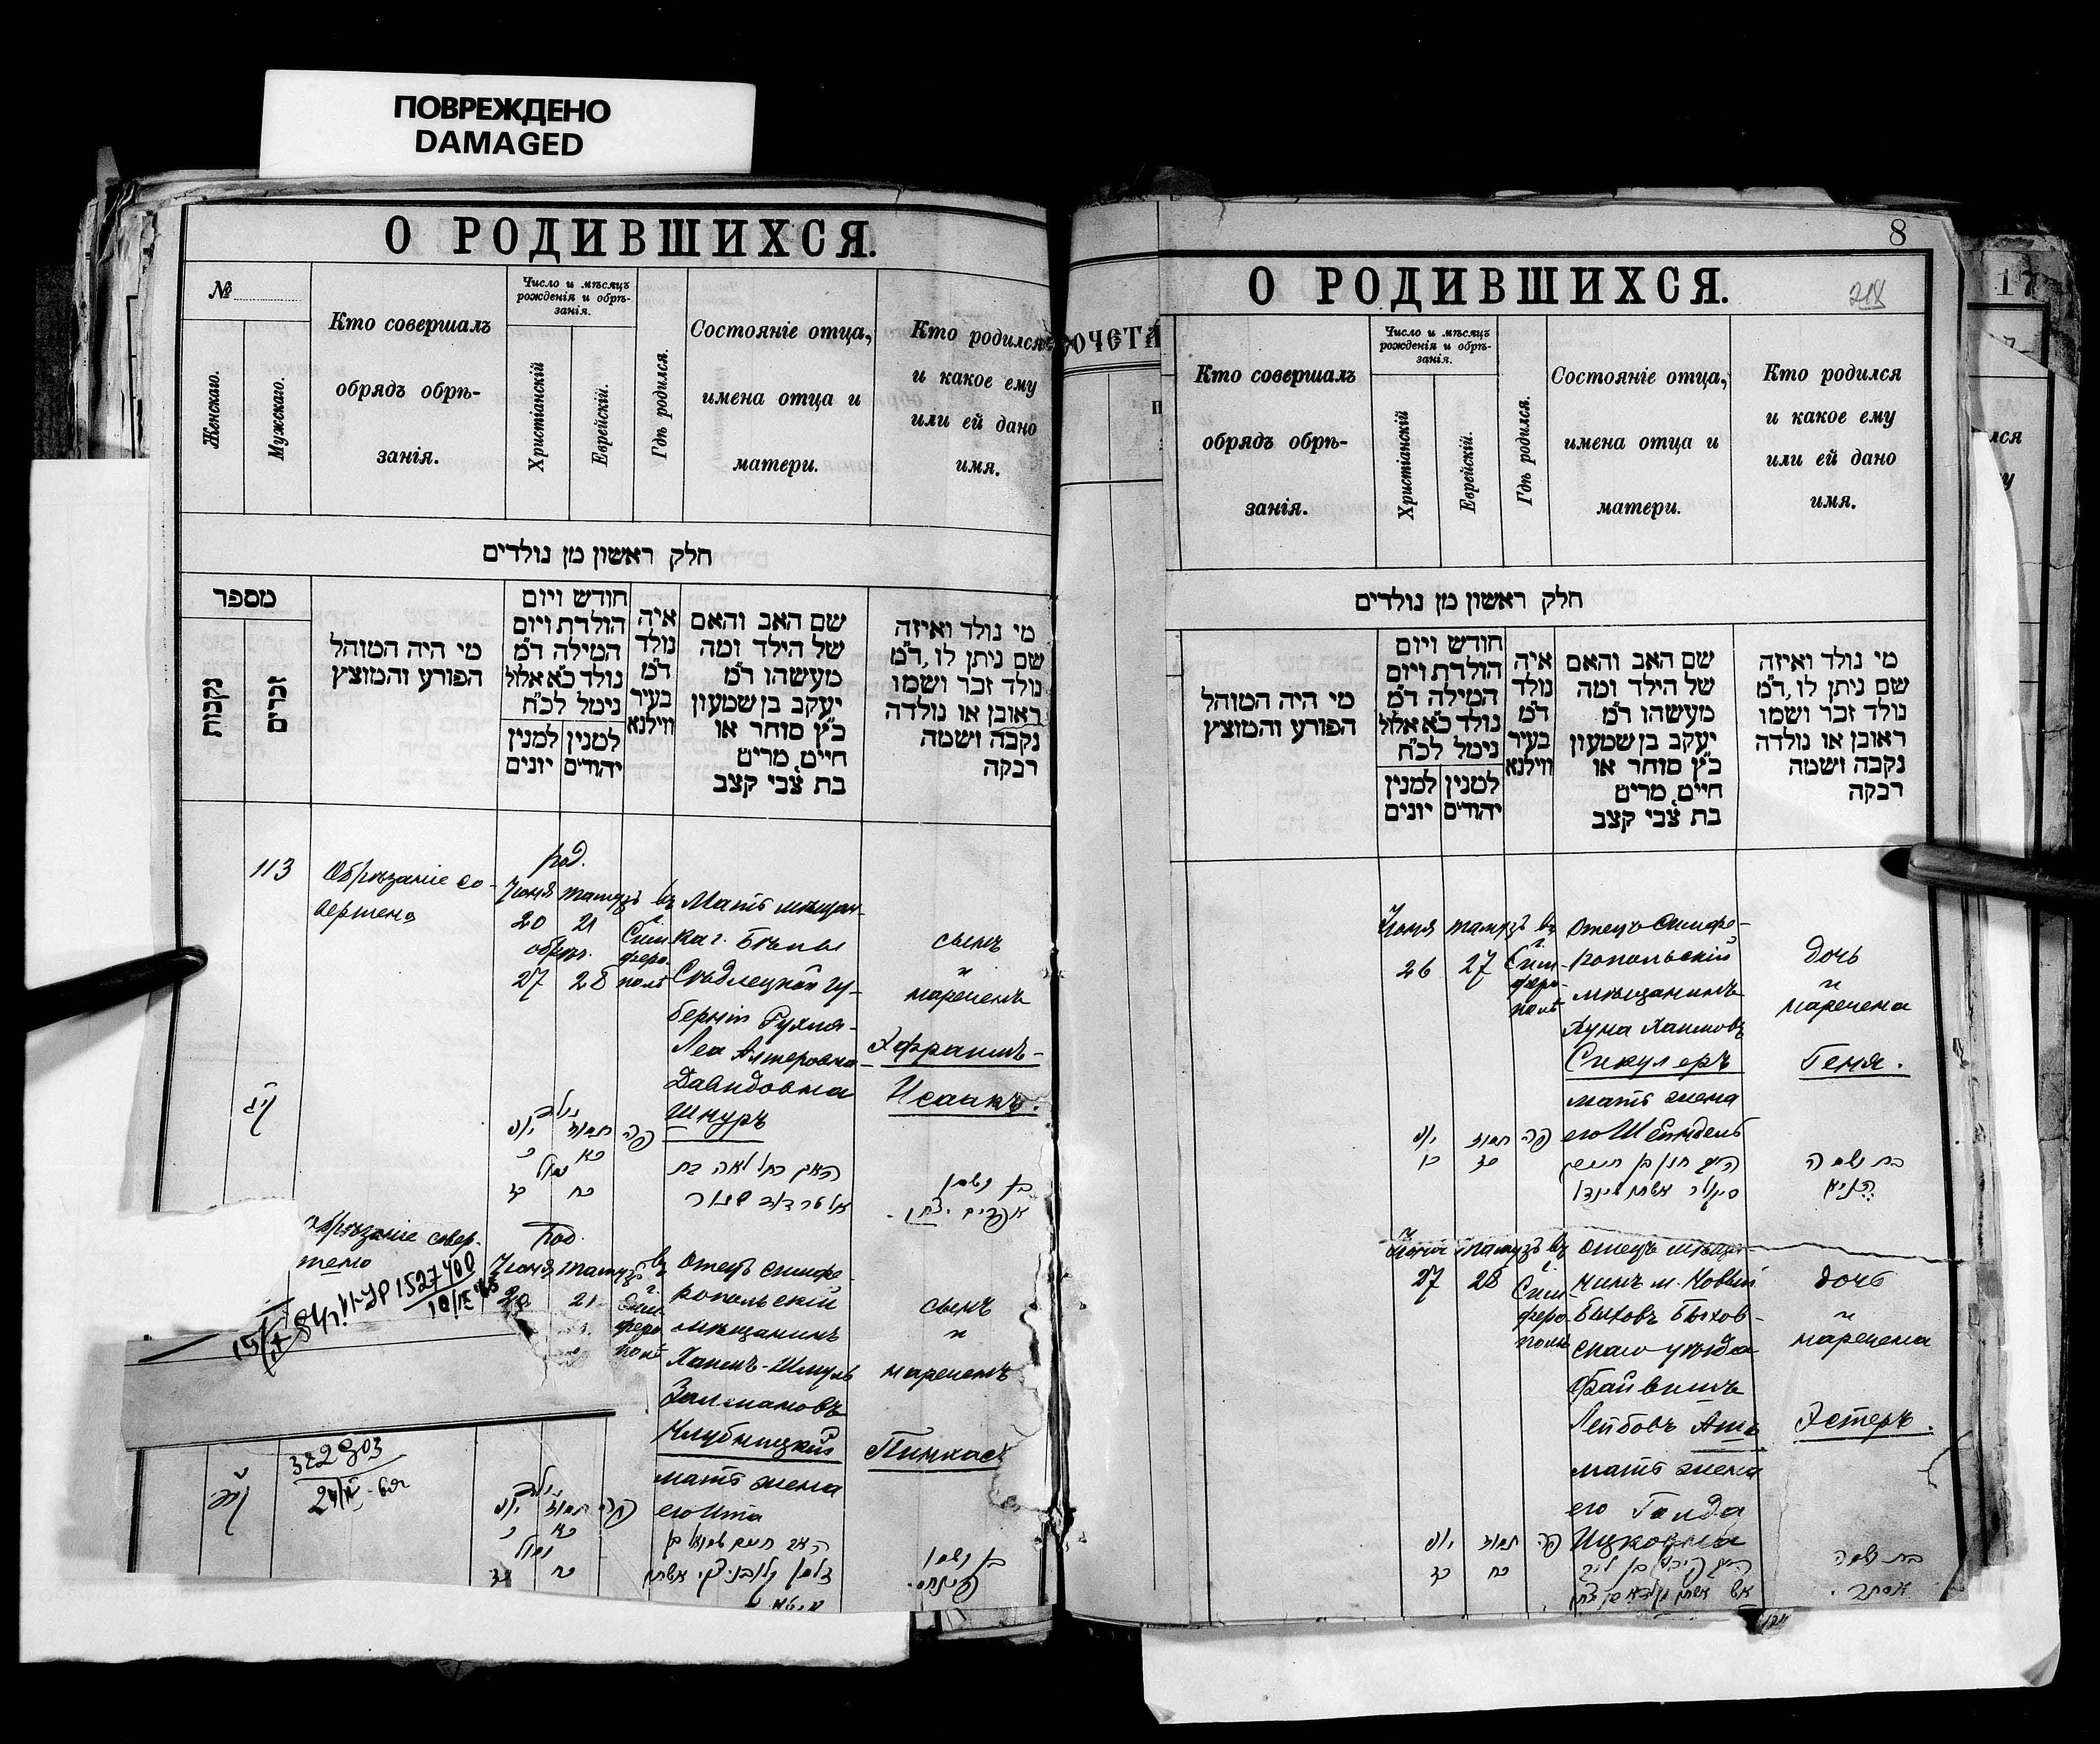 ПОВРЕЖДЕНО
DAMAGED
О РОДИВШИХСЯ.
№
Женскаго.
Мужскаго.
Кто совершалъ
обрядъ обрѣ-
занія.
Число и мѣсяцъ
рожденія и обрѣ-
занія.
Христіанскій
Еврейскій.
Гдѣ родился.
Состояніе отца,
имена отца и
матери.
Кто родился
и какое ему
или ей дано
имя.
חלק ראשון מן נולדים
מספר
נקבות
זכרים
מי היה המוהל
הפורע והמוצץ
חודש ויום
הולדת ויום
המילה ד״מ
נולד כ״א אלול
נימל לכ״ח
למנין למנין
יהודים יונים
איה
נולד
ד״מ
בעיר
ווילנא
שם האב והאם
של הילד ומה
מעשהו ד״מ
יעקב בן שמעון
כ״ץ סוחר או
חיים, מרים
בת צבי קצב
מי נולד ואיזה
שם ניתן לו, ד״מ
נולד זכר ושמו
ראובן או נולדה
נקבה ושמה
רבקה
113
Обрѣзаніе со-
вершено
род.
Іюня тамузъ
20 21
обрѣз.
27 28
въ
г.
Сим
феро
полѣ
Мать мѣщан-
ка г. Бѣлы
Сѣдлецкой гу-
берніи Рухля-
Леа Алтеровна-
Давидовна
Шнуръ
сынъ
и
нареченъ
Эфраимъ-
Исаакъ.
קי״ג
יוני תמוז פה
כ כא
נמול
כז כח
האם רחל לאה בת
אלטר דוד שנור
בן ושמו
אפרים יצחק.
обрѣзаніе совер-
шено
род.
Іюня тамузъ
20 21
въ
г.
Сим
феро
полѣ
Отецъ симфе-
ропольскій
мѣщанинъ
Хаимъ-Шмуль
Залмановъ
Клубницкій
мать жена
его Ита
сынъ
и
нареченъ
Пинхасъ
1527400
322903
יוני תמוז פה
כ כא
נמול
כז כח
האב חיים שמואל בן
זלמן קלובניצקי אשתו
איטא
בן ושמו
פינחס.
8
218
О РОДИВШИХСЯ.
Кто совершалъ
обрядъ обрѣ-
занія.
Число и мѣсяцъ
рожденія и обрѣ-
занія.
Христіанскій
Еврейскій.
Гдѣ родился.
Состояніе отца,
имена отца и
матери.
Кто родился
и какое ему
или ей дано
имя.
חלק ראשון מן נולדים
מי היה המוהל
הפורע והמוצץ
חודש ויום
הולדת ויום
המילה ד״מ
נולד כ״א אלול
נימל לכ״ח
למנין למנין
יהודים יונים
איה
נולד
ד״מ
בעיר
ווילנא
שם האב והאם
של הילד ומה
מעשהו ד״מ
יעקב בן שמעון
כ״ץ סוחר או
חיים, מרים
בת צבי קצב
מי נולד ואיזה
שם ניתן לו, ד״מ
נולד זכר ושמו
ראובן או נולדה
נקבה ושמה
רבקה
Іюня тамузъ
26 27
въ
г.
Сим
феро-
полѣ
Отецъ Симфе-
ропольскій
мѣщанинъ
Хуна Хаимовъ
Сикулеръ
мать жена
его Шейндель
дочь
и
наречена
Геня.
יוני תמוז פה
כו כז
האב חנן בן חיים
סיקולר אשתו שיינדל
בת ושמה
העניא
Іюня тамузъ
27 28
въ
г.
Сим
феро
полѣ
Отецъ мѣща-
нинъ м. Новый
Быховъ Быхов-
скаго уѣзда
Файвишъ
Лейбовъ Ашъ
мать жена
его Голда
Ицковна
дочь
и
наречена
Эстеръ.
יוני תמוז פה
כז כח
האב פייביש בן ליב
אש אשתו גולדא
בת ושמה
אסתר.
17